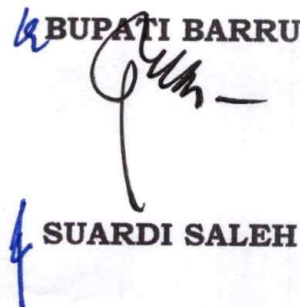 BUPATI BARRU
SUARDI SALEH